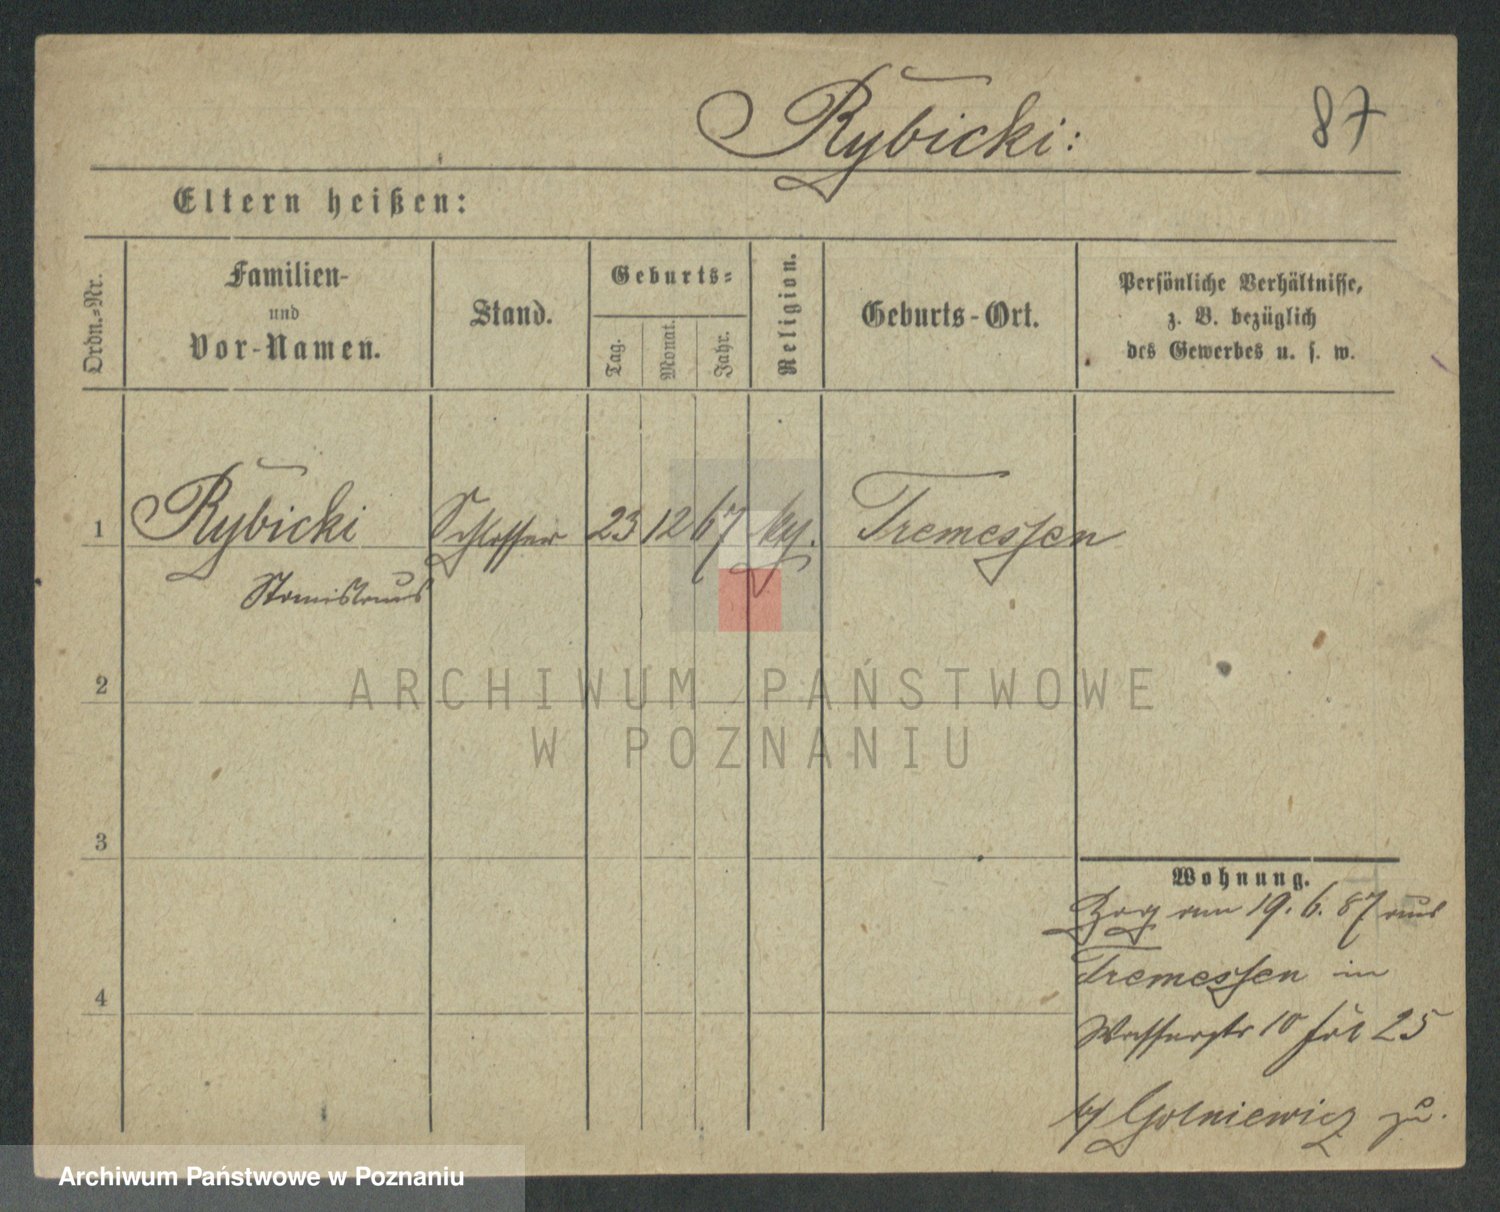 Rybicki:
87
Eltern heißen:
Ordn.-Nr.
Familien-
und
Vor-Namen.
Stand.
Geburts-
Tag.
Monat.
Jahr.
Religion.
Geburts-Ort.
Persönliche Verhältnisse,
z. B. bezüglich
des Gewerbes u. s. w.
1 Rybicki Schlosser 23 12 67 Tremessen
Stanislaus
2
ARCHIWUM PAŃSTWOWE
W POZNANIU
3
Wohnung.
Zog am 19. 6. 87 aus
Tremessen in
4
Wasserstr 10 25
Golniewicz zu.
Archiwum Państwowe w Poznaniu